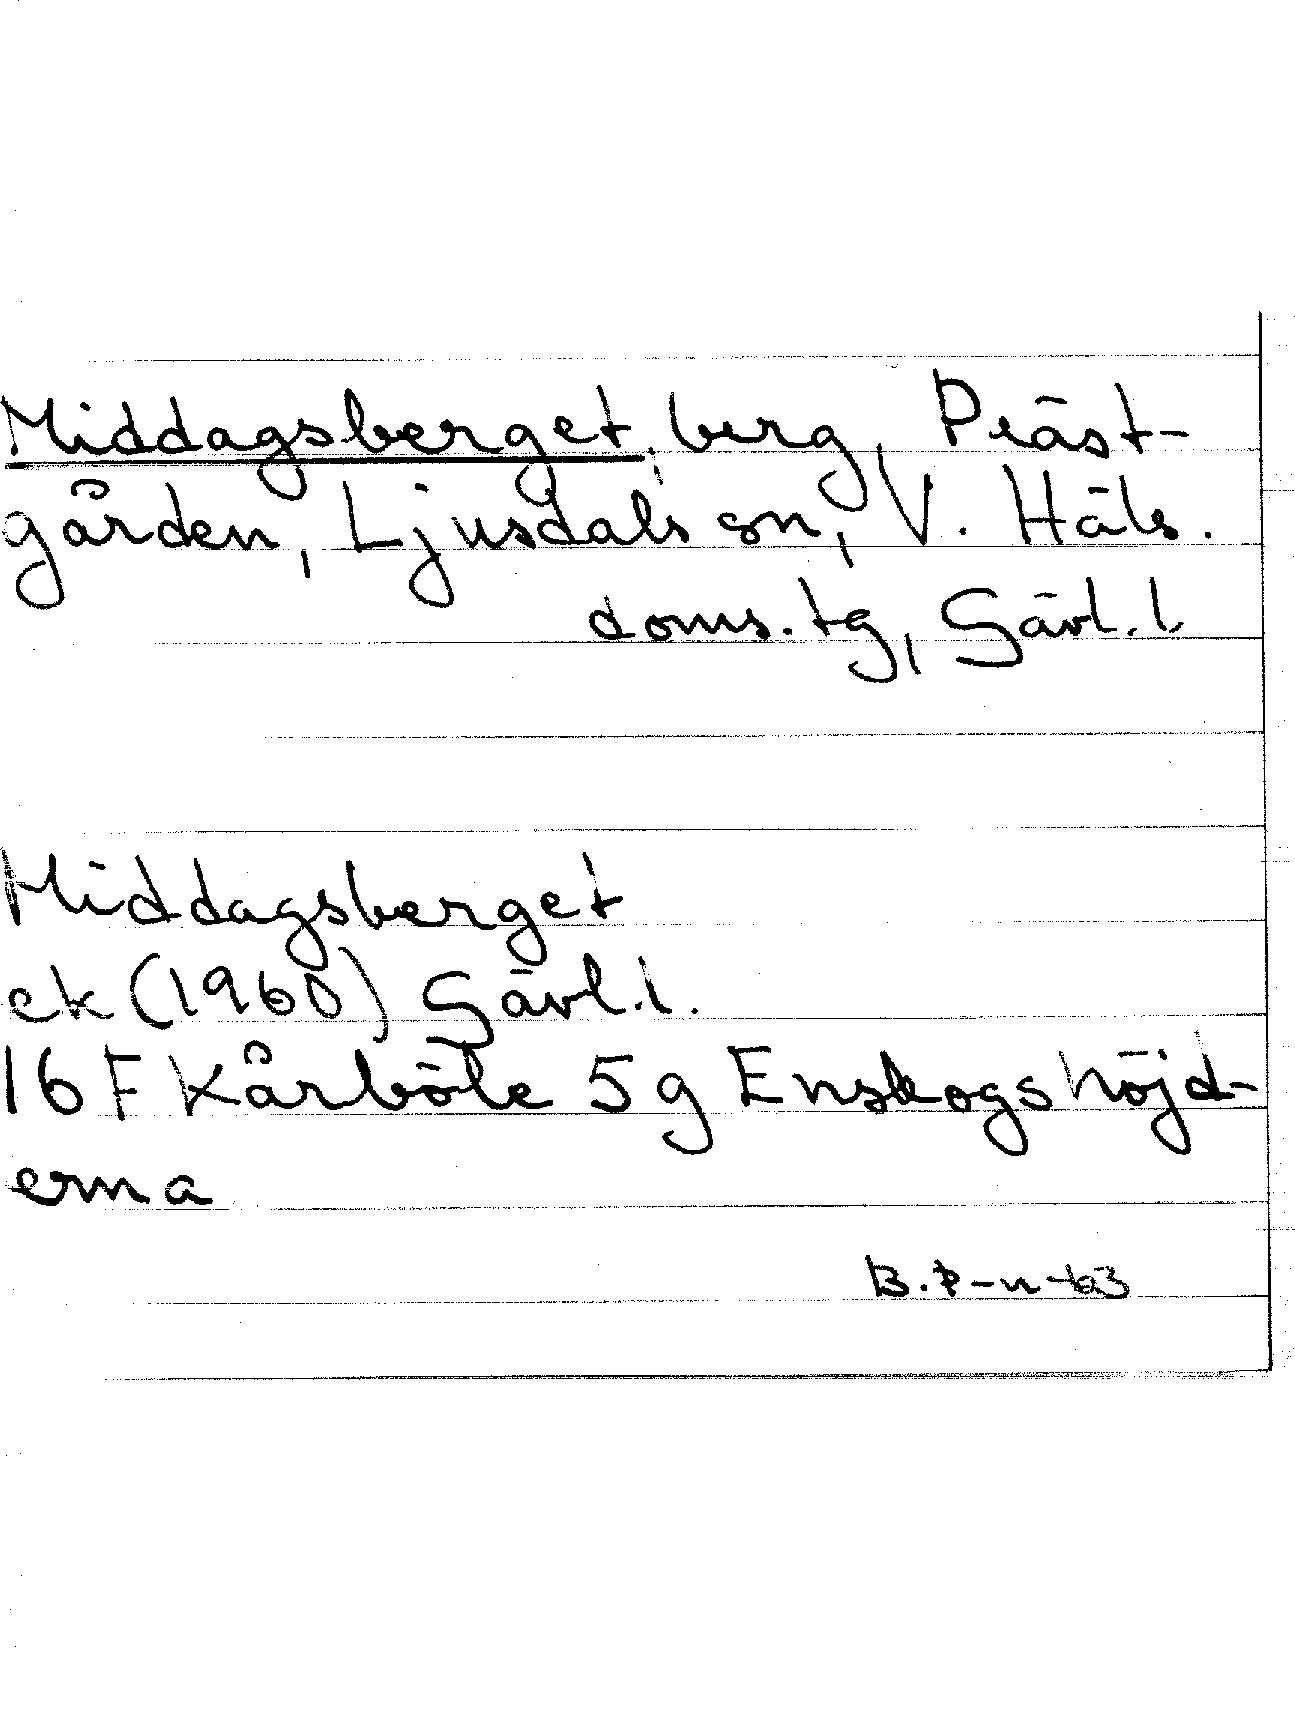 Middagsberget, berg, Präst-
gården, Ljusdals sn, V. Häls.
doms.tg, Gävl.l.
Middagsberget
ek (1960) Gävl.l.
16 F Kårböle 5 g Enskogshöjd-
erna
B.P-n-63